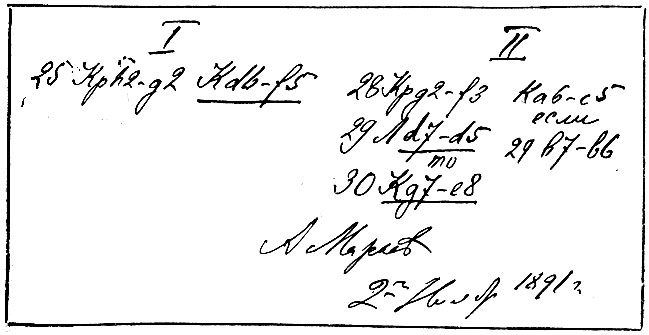 I II
25 Kph2-g2 Kd6-f5 28 Kpg2-f3 Ka6-c5
если
29 Лd7-d5 29 b7-b6
то
30 Kg7-e8
А Марков
2 1891 г